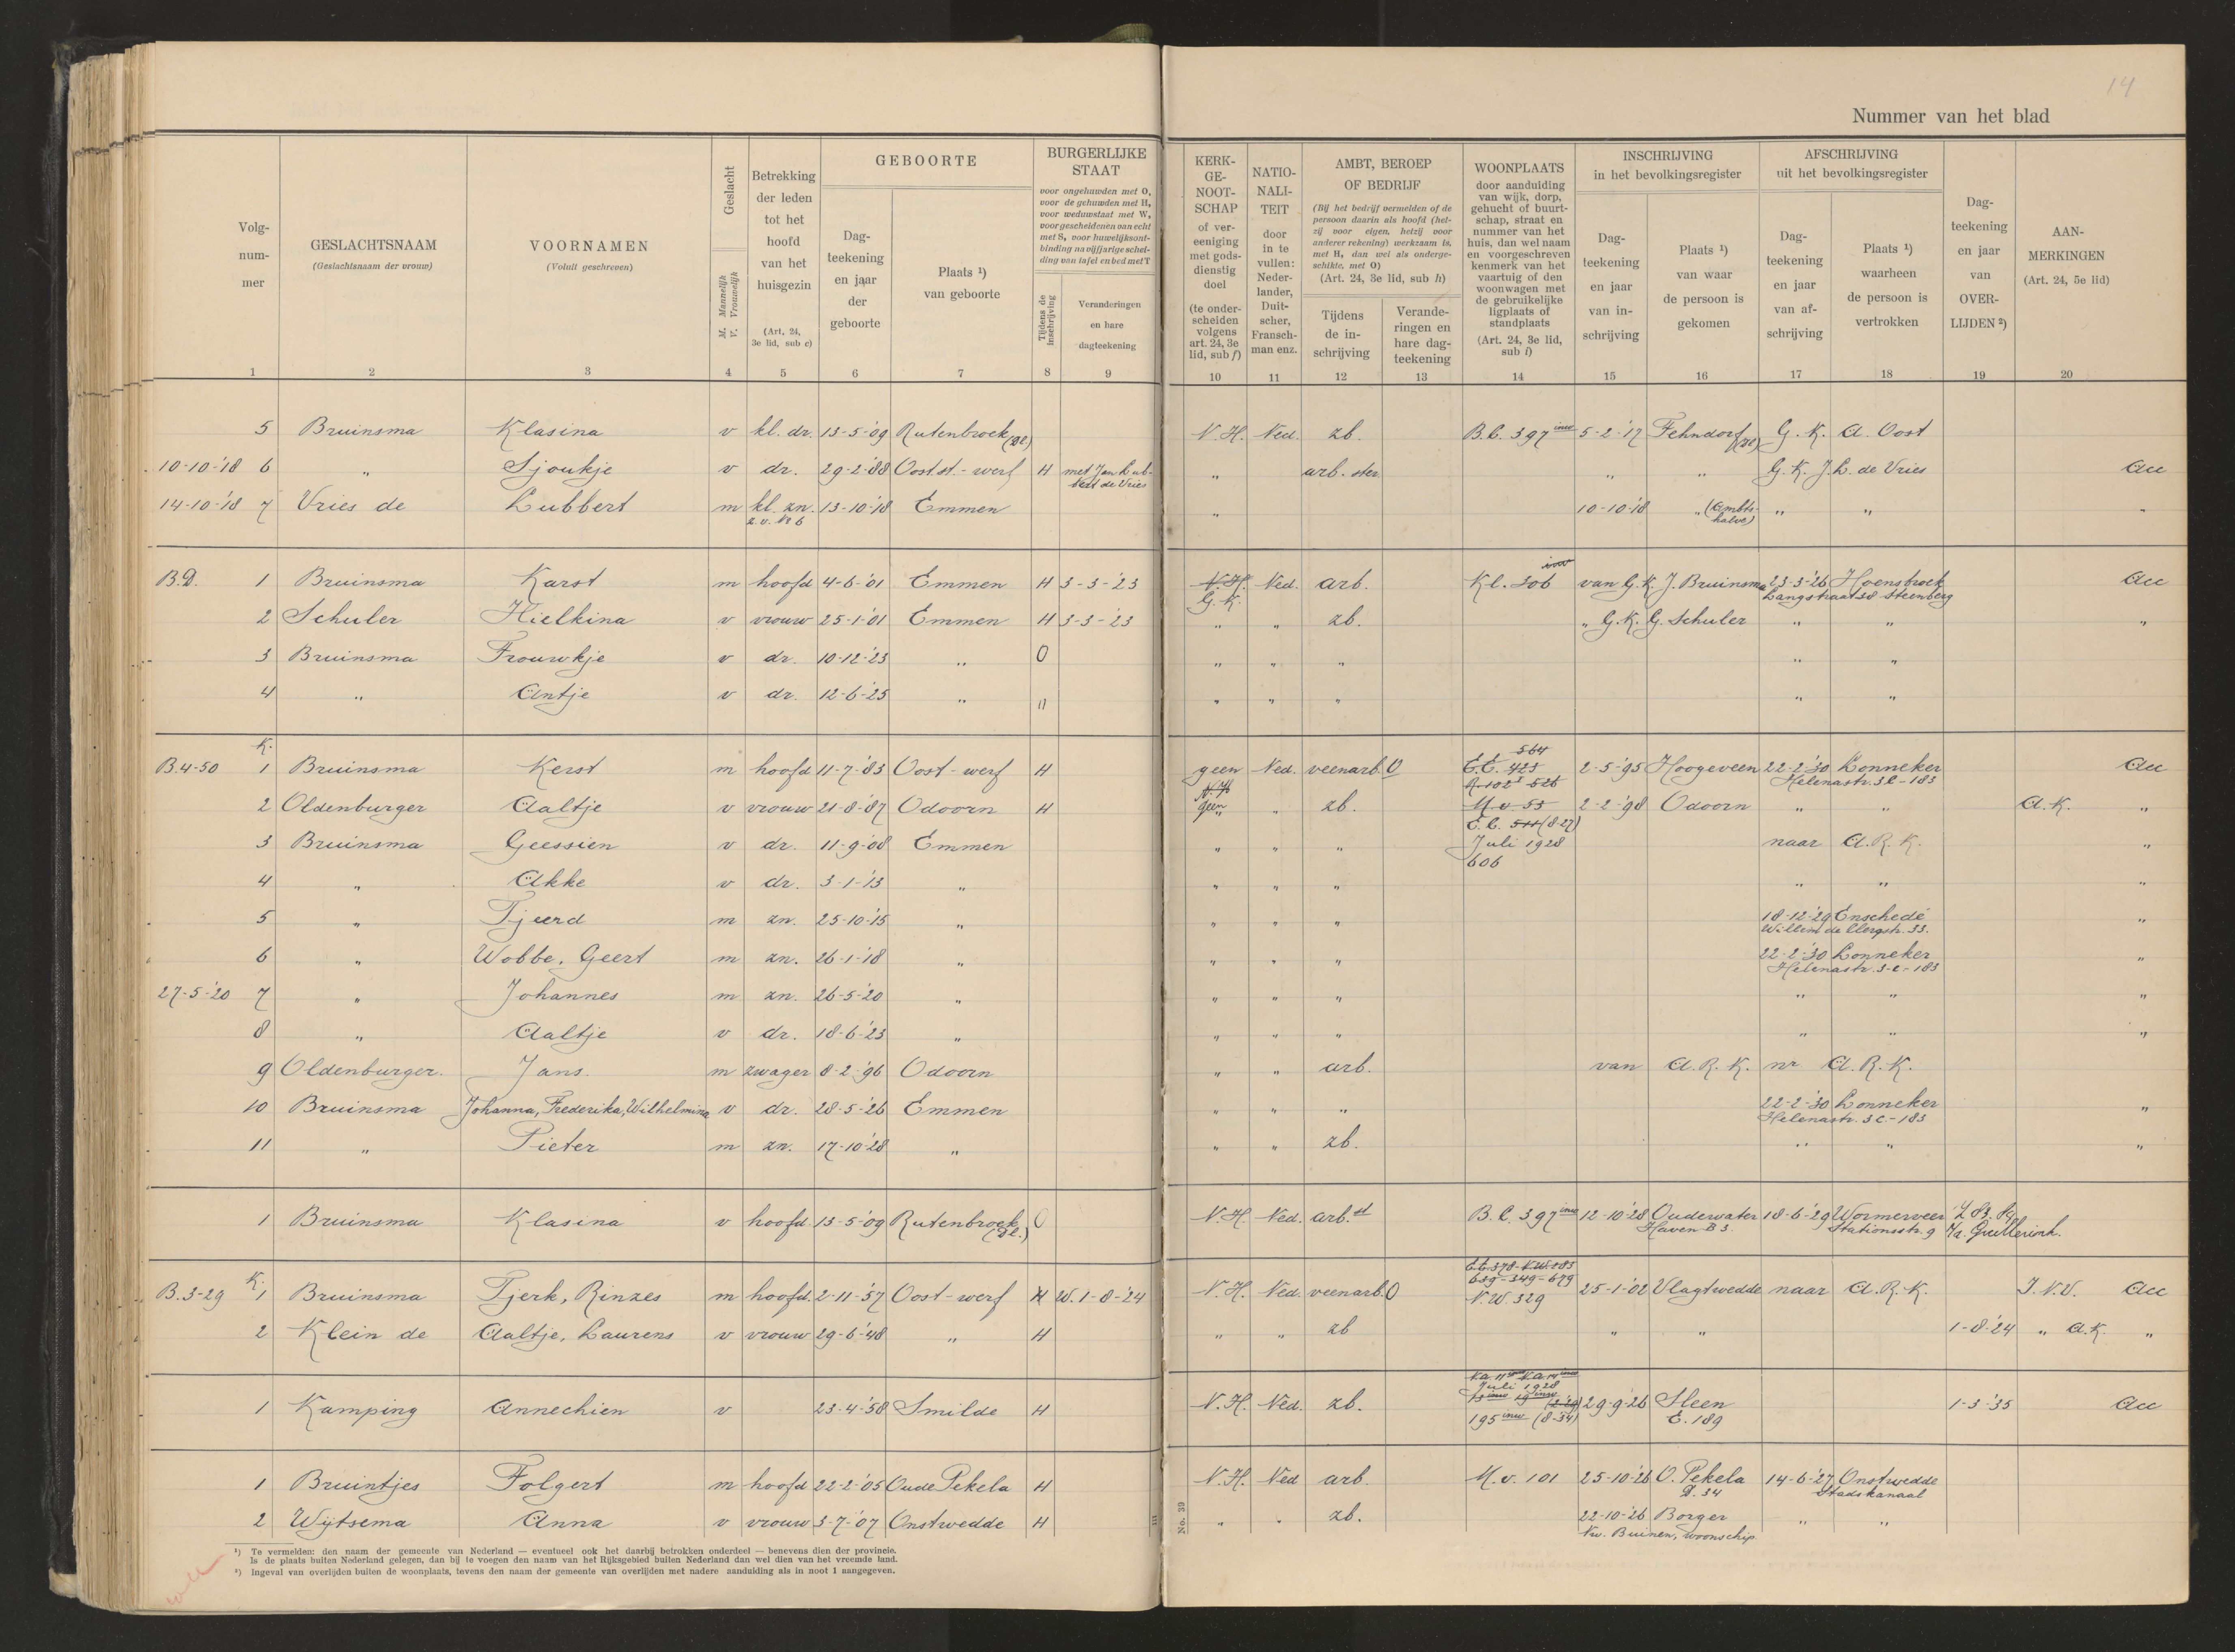 14
Nummer van het blad
Volg-
num-
mer
GESLACHTSNAAM
(Geslachtsnaam der vrouw)
VOORNAMEN
(Voluit geschreven)
Geslacht
M. Mannelijk
V. Vrouwelijk
Betrekking
der leden
tot het
hoofd
van het
huisgezin
(Art. 24,
3e lid, sub c)
GEBOORTE
Dag-
teekening
en jaar
der
geboorte
Plaats ¹)
van geboorte
BURGERLIJKE
STAAT
voor ongehuwden met O,
voor de gehuwden met H,
voor weduwstaat met W,
voor gescheidenen van echt
met S, voor huwelijksont-
binding na vijfjarige schei-
ding van tafel en bed met T
Tijdens de
inschrijving
Veranderingen
en hare
dagteekening
KERK-
GE-
NOOT-
SCHAP
of ver-
eeniging
met gods-
dienstig
doel
(te onder-
scheiden
volgens
art. 24, 3e
lid, sub f)
NATIO-
NALI-
TEIT
door
in te
vullen:
Neder-
lander,
Duit-
scher,
Fransch-
man enz.
AMBT, BEROEP
OF BEDRIJF
(Bij het bedrijf vermelden of de
persoon daarin als hoofd (het-
zij voor eigen, hetzij voor
anderer rekening) werkzaam is,
met H, dan wel als onderge-
schikte, met O)
(Art. 24, 3e lid, sub h)
Tijdens
de in-
schrijving
Verande-
ringen en
hare dag-
teekening
WOONPLAATS
door aanduiding
van wijk, dorp,
gehucht of buurt-
schap, straat en
nummer van het
huis, dan wel naam
en voorgeschreven
kenmerk van het
vaartuig of den
woonwagen met
de gebruikelijke
ligplaats of
standplaats
(Art. 24, 3e lid,
sub i)
INSCHRIJVING
in het bevolkingsregister
Dag-
teekening
en jaar
van in-
schrijving
Plaats ¹)
van waar
de persoon is
gekomen
AFSCHRIJVING
uit het bevolkingsregister
Dag-
teekening
en jaar
van af-
schrijving
Plaats ¹)
waarheen
de persoon is
vertrokken
Dag-
teekening
en jaar
van
OVER-
LIJDEN ²)
AAN-
MERKINGEN
(Art. 24, 5e lid)
1 2 3 4 5 6 7 8 9 10 11 12 13 14 15 16 17 18 19 20
5 Bruinsma Klasina v kl. dr. 13-5-'09 Rutenbroek (Dl.) N.H. Ned. zb. B.C. 397 inw 5-2-'17 Fehndorf (Dl.) G.K. A. Oost
10-10-'18 6 " Sjoukje v dr. 29-2-'88 Oostst.-werf H met Jan Lub- " arb.ster " " G.K. J.L. de Vries Acc
bert de Vries
14-10-'18 7 Vries de Lubbert m kl. zn. 13-10-'18 Emmen " 10-10-'18 " (Ambts- " " "
z.v. No 6 halve)
B.D. 1 Bruinsma Karst m hoofd 4-6-'01 Emmen H 3-3-'23 N.H. Ned. arb. Kl. 306 inw van G.K. J. Bruinsma 23-3-'26 Hoensbroek Acc
G.K. Langstraat 38 Steenberg
2 Schuler Hielkina v vrouw 25-1-'01 Emmen H 3-3-'23 " " zb. " G.K. G. Schuler " " "
3 Bruinsma Frouwkje v dr. 10-12-'23 " O " " " " "
4 " Antje v dr. 12-6-'25 " " " " " " "
K.
564
B.4-50 1 Bruinsma Kerst m hoofd 11-7-'83 Oost-werf H geen Ned. veenarb. O E.E. 423 2-5-'95 Hoogeveen 22-2-'30 Lonneker Acc
N.H. Helenastr. 3C-183
2 Oldenburger Aaltje v vrouw 21-8-'87 Odoorn H geen " zb. M.v. 55 2-2-'98 Odoorn " " A.K. "
E.C. 511 (8-27)
3 Bruinsma Geessien v dr. 11-9-'08 Emmen " " " Juli 1928 naar A.R.K. "
606
4 " Akke v dr. 3-1-'13 " " " " " " "
5 " Tjeerd m zn. 25-10-'15 " " " " 18-12-'29 Enschede "
Willem de Clercqstr. 33.
6 " Wobbe, Geert m zn. 26-1-'18 " " " " 22-2-'30 Lonneker "
Helenastr. 3-C-183
27-5-'20 7 " Johannes m zn. 26-5-'20 " " " " " " "
8 " Aaltje v dr. 18-6-'23 " " " " " " "
9 Oldenburger. Jans. m zwager 8-2-'96 Odoorn " " arb. van A.R.K. nr A.R.K.
10 Bruinsma Johanna, Frederika, Wilhelmina v dr. 28-5-'26 Emmen " " " 22-2-'30 Lonneker "
Helenastr. 3C-183
11 " Pieter m zn. 17-10-'28 " " " zb. " " "
1 Bruinsma Klasina v hoofd 13-5-'09 Rutenbroek (Dl.) O N.H. Ned. arb.st B.C. 397 inw 12-10-'28 Oudewater 18-6-'29 Wormerveer
Haven B 3. Stationsstr. 9
B.3-29 K. 1 Bruinsma Tjerk, Rinzes m hoofd 2-11-'57 Oost-werf H W. 1-8-'24 N.H. Ned. veenarb. O 639-349-679 25-1-'02 Vlagtwedde naar A.R.K. I.N.V. Acc
N.W. 329
2 Klein de Aaltje, Laurens v vrouw 29-6-'48 " H " " zb " " 1-8-'24 " A.K. "
Juli 1928
1 Kamping Annechien v 23-4-'58 Smilde H N.H. Ned. zb. 29-9-'26 Sleen 1-3-'35 Acc
195 inw (8-34) E. 189
1 Bruintjes Folgert m hoofd 22-2-'05 Oude Pekela H N.H. Ned arb. M.v. 101 25-10-'26 O. Pekela 14-6-'27 Onstwedde
D. 34 Stadskanaal
2 Wijtsema Anna v vrouw 3-7-'07 Onstwedde H " " zb. 22-10-'26 Borger " "
Nw. Buinen, woonschip
No. 39
¹) Te vermelden: den naam der gemeente van Nederland — eventueel ook het daarbij betrokken onderdeel — benevens dien der provincie.
Is de plaats buiten Nederland gelegen, dan bij te voegen den naam van het Rijksgebied buiten Nederland dan wel dien van het vreemde land.
²) Ingeval van overlijden buiten de woonplaats, tevens den naam der gemeente van overlijden met nadere aanduiding als in noot 1 aangegeven.